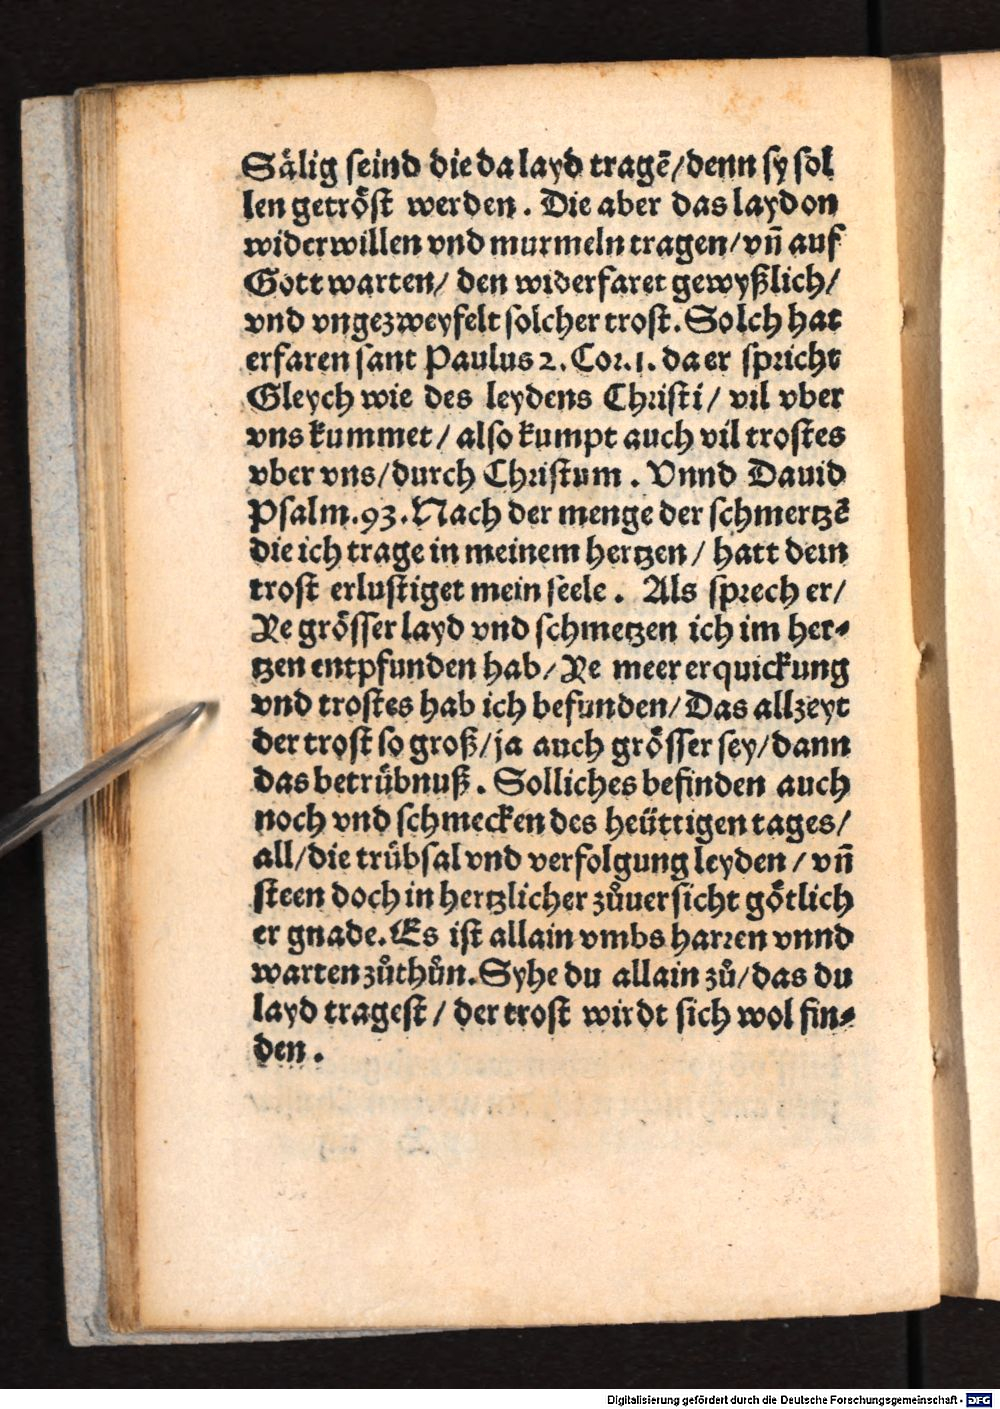 Sålig seind die da layd tragē/denn sy sol
len getröst werden. Die aber das layd on
widerwillen vnd murmeln tragen/vñ auf
Gott warten/ den widerfaret gewyßlich/
vnd vngezweyfelt solcher trost. Solch hat
erfaren sant Paulus 2. Cor. 1. da er spricht
Gleych wie des leydens Christi/ vil vber
vns kummet/ also kumpt auch vil trostes
vber vns/durch Christum. Vnnd Dauid
Psalm.93. Nach der menge der schmertzē
die ich trage in meinem hertzen/ hatt dein
trost erlustiget mein seele. Als sprech er/
Ye grösser layd vnd schmetzen ich im her-
tzen entpfunden hab/Ye meer erquickung
vnd trostes hab ich befunden/Das allzeyt
der trost so groß/ja auch grösser sey/dann
das betrübnuß. Solliches befinden auch
noch vnd schmecken des heüttigen tages/
all/die trübsal vnd verfolgung leyden/ vñ
steen doch in hertzlicher zůuersicht götlich
er gnade. Es ist allain vmbs harren vnnd
warten zůthůn. Syhe du allain zů/das du
layd tragest/ der trost wirdt sich wol fin-
den.
Digitalisierung gefördert durch die Deutsche Forschungsgemeinschaft - DFG